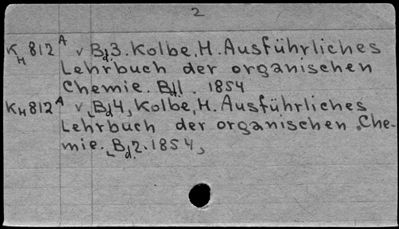 2
K_H 812^A v Bd3. Kolbe, H. Ausführliches
Lehrbuch der organischen
Chemie. Bd1. 1854
K_H 812^A v [Bd4, Kolbe, H. Ausführliches
Lehrbuch der organischen Che-
mie. [Bd2. 1854,